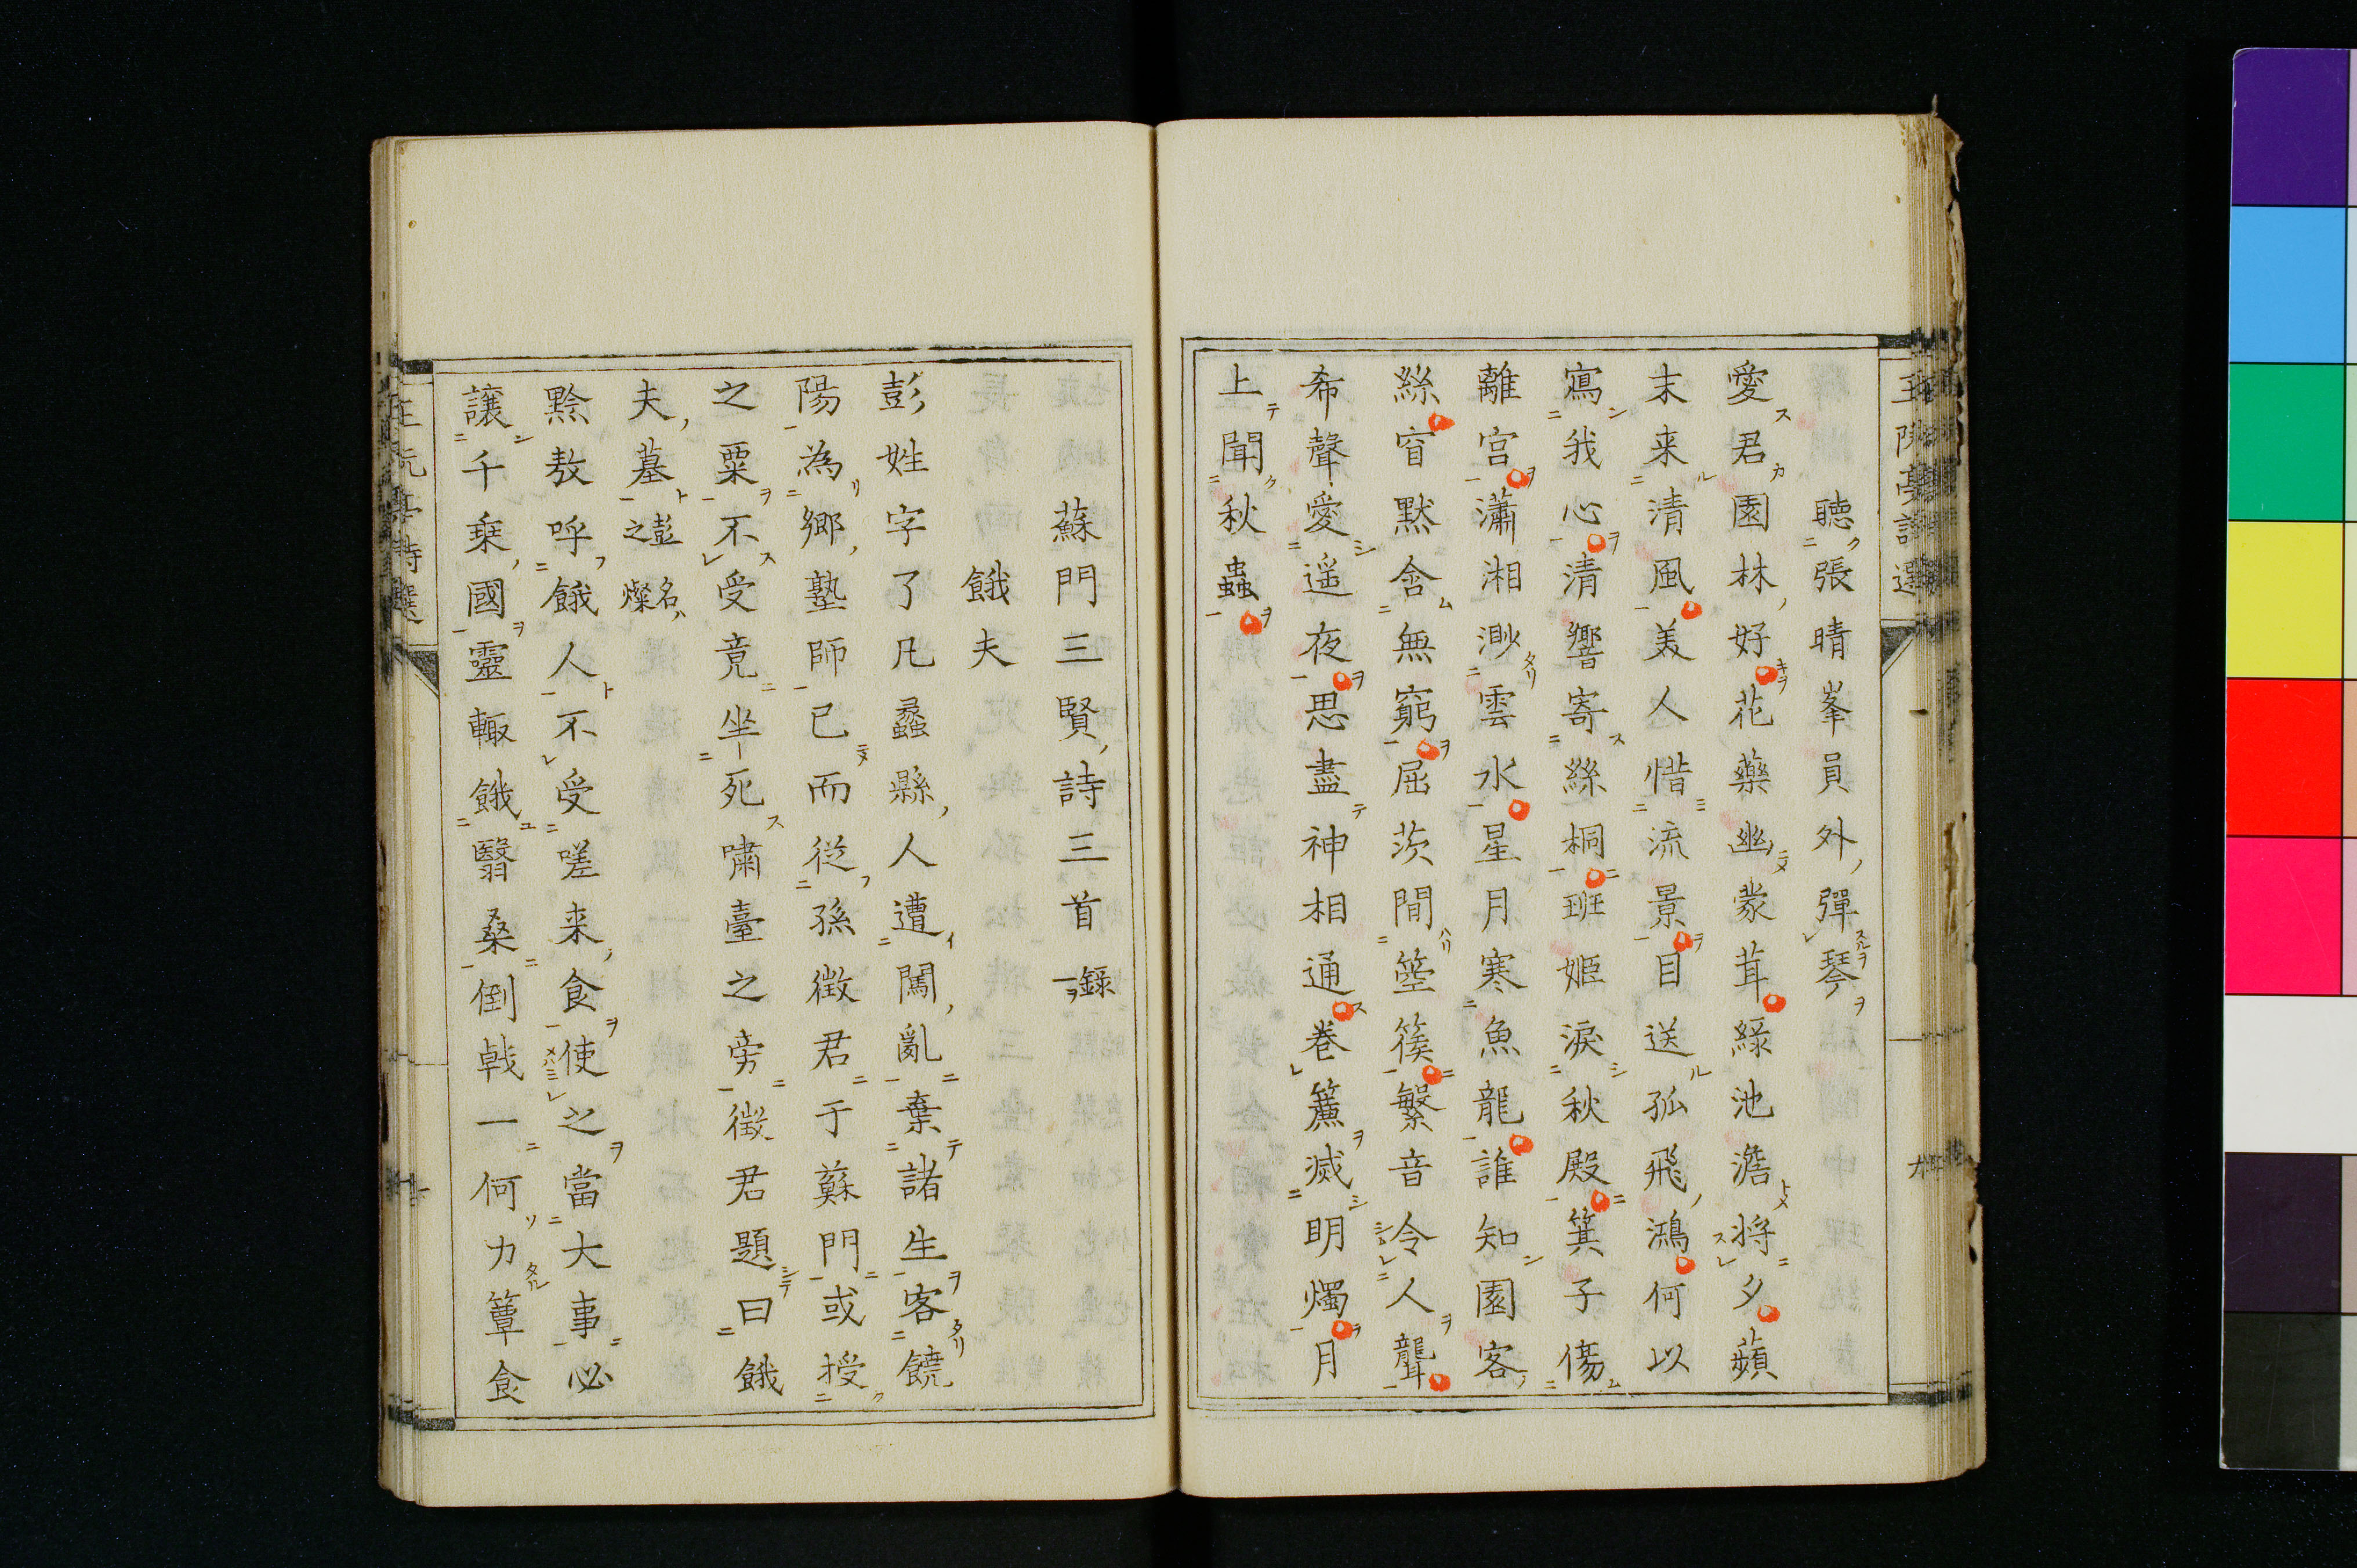 聴張晴峯員外彈琴
愛君園林好花藥幽蒙茸緑池澹将夕蘋
末来清風美人惜流景目送孤飛鴻何以
寫我心清響寄絲桐班姬涙秋殿箕子傷
離宫瀟湘渺雲水星月寒魚龍誰知園客
絲窅黙含無窮屈茨間箜篌繁音令人聾
希聲愛遥夜思盡神相通巻簾滅明燭月
上聞秋蟲
蘇門三賢詩三首 録一
餓夫
彭姓字了凡蠡縣人遭闖亂棄諸生客饒
陽為鄉塾師已而從孫徴君于蘇門或授
之粟不受竟坐死嘯臺之旁徴君題曰餓
夫墓 彭名之燦
黔敖呼餓人不受嗟来食使之當大事必
讓千乗國靈輙餓翳桑倒戟一何力簞食